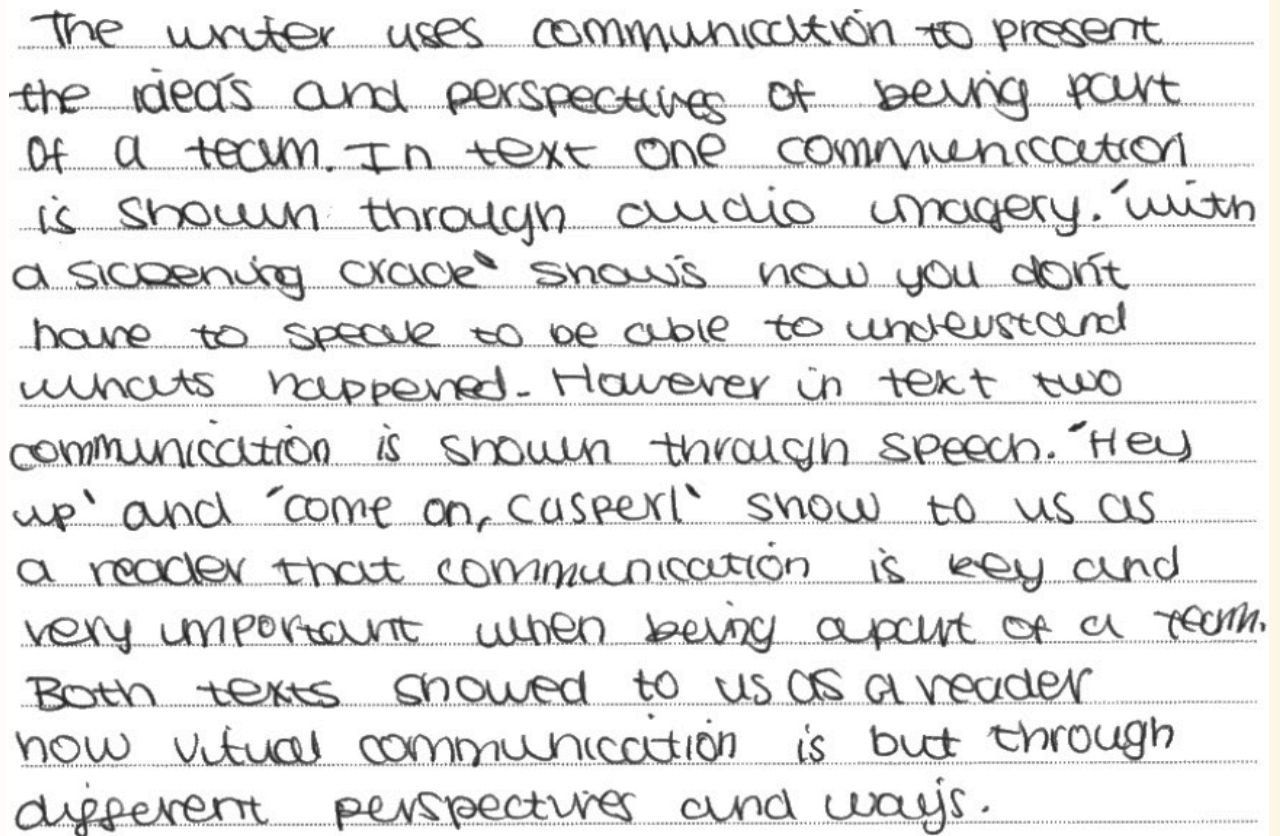 The writer uses communication to present
the ideas and perspectives of being part
of a team. In text one communication
is shown through audio imagery. 'with
a sickening crack' shows how you don't
have to speak to be able to understand
whats happened. However in text two
communication is shown through speech. 'Hey
up' and 'come on, Casper!' show to us as
a reader that communication is key and
very important when being apart of a team.
Both texts showed to us as a reader
how vitual communication is but through
different perspectives and ways.